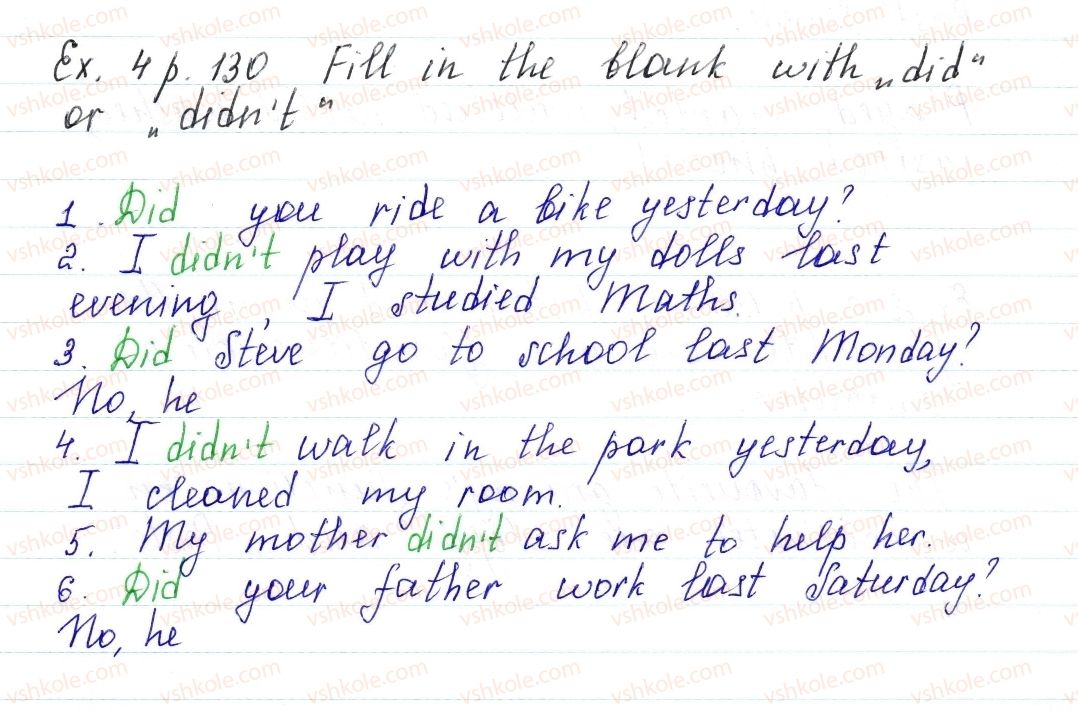 Ex. 4 p. 130 Fill in the blank with „did“
or „didn't“
1. Did you ride a bike yesterday?
2. I didn't play with my dolls last
evening, I studied Maths.
3. Did Steve go to school last Monday?
No, he
4. I didn't walk in the park yesterday,
I cleaned my room.
5. My mother didn't ask me to help her.
6. Did your father work last Saturday?
No, he